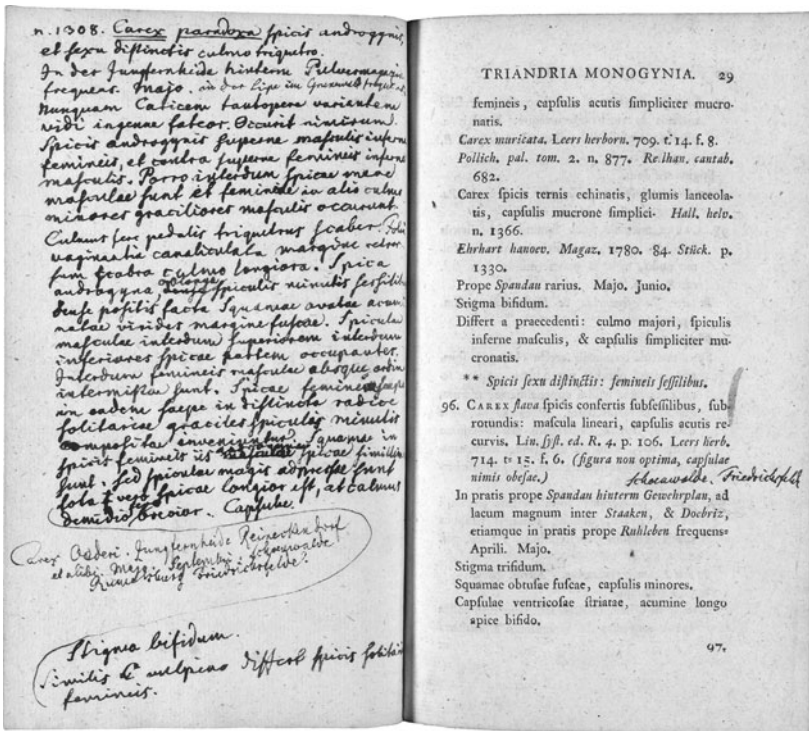 n. 1308. Carex paradoxa spicis androgynis,
et sexu distinctis culmo triquetro.
In der Jungfernheide hinterm Pulvermagazin
frequens. Majo. in der
Nunquam Caricem tantopere variantem
vidi ingenue fateor. Occurit nimirum
Spicis androgynis superne masculis inferne
femineis, et contra superne femineis inferne
masculis. Porro interdum spicae mere
masculae sunt et femineae in aliis culmis
minores graciliores masculis occurunt.
Culmus fere pedalis triquetrus scaber. Folia
vaginantia canaliculata margine retror
sum scabra culmo longiora. Spica
androgyna oblonga spiculis minutis sessilibus
dense positis facta Squamae ovatae acumi
natae virides margine fuscae. Spiculae
masculae interdum superiorem interdum
inferiores spicae partem occupantes.
Interdum femineis masculae absque ordine
intermistae sunt. Spicae femineae
in eadem saepe in distincta radice
solitariae graciles spiculis minutis
compositae inveniuntur. Squamae in
spicis femineis iis spicae simillimae
sunt. Sed spiculae magis adpressae sunt
tota vero spicae longior est, at culmus
dimidio brevior. Capsulae.
Carex Oederi. Jungfernheide Reineckendorf
et alibi. Majo. Septembri. Schoenwalde
Friedrichsfelde?
Stigma bifidum.
Similis C vulpino differt spicis solitariis
femineis.
TRIANDRIA MONOGYNIA. 29
femineis, capſulis acutis ſimpliciter mucro-
natis.
Carex muricata. Leers herborn. 709. t. 14. f. 8.
Pollich. pal. tom. 2. n. 877. Relhan. cantab.
682.
Carex ſpicis ternis echinatis, glumis lanceola-
tis, capſulis mucrone ſimplici. Hall. helv.
n. 1366.
Ehrhart hanoev. Magaz. 1780. 84. Stück. p.
1330.
Prope Spandau rarius. Majo. Junio.
Stigma bifidum.
Differt a praecedenti: culmo majori, ſpiculis
inferne maſculis, & capſulis ſimpliciter mu-
cronatis.
** Spicis ſexu diſtinctis: femineis ſeſſilibus.
96. CAREX flava ſpicis confertis ſubſeſſilibus, ſub-
rotundis: maſcula lineari, capſulis acutis re-
curvis. Lin. ſyſt. ed. R. 4. p. 106. Leers herb.
714. t. 15. f. 6. (figura non optima, capſulae
nimis obeſae.) Schoenwalde. Friedrichsfeld
In pratis prope Spandau hinterm Gewehrplan, ad
lacum magnum inter Staaken, & Doebriz,
etiamque in pratis prope Ruhleben frequens.
Aprili. Majo.
Stigma trifidum.
Squamae obtuſae fuſcae, capſulis minores.
Capſulae ventricoſae ſtriatae, acumine longo
apice bifido.
97.